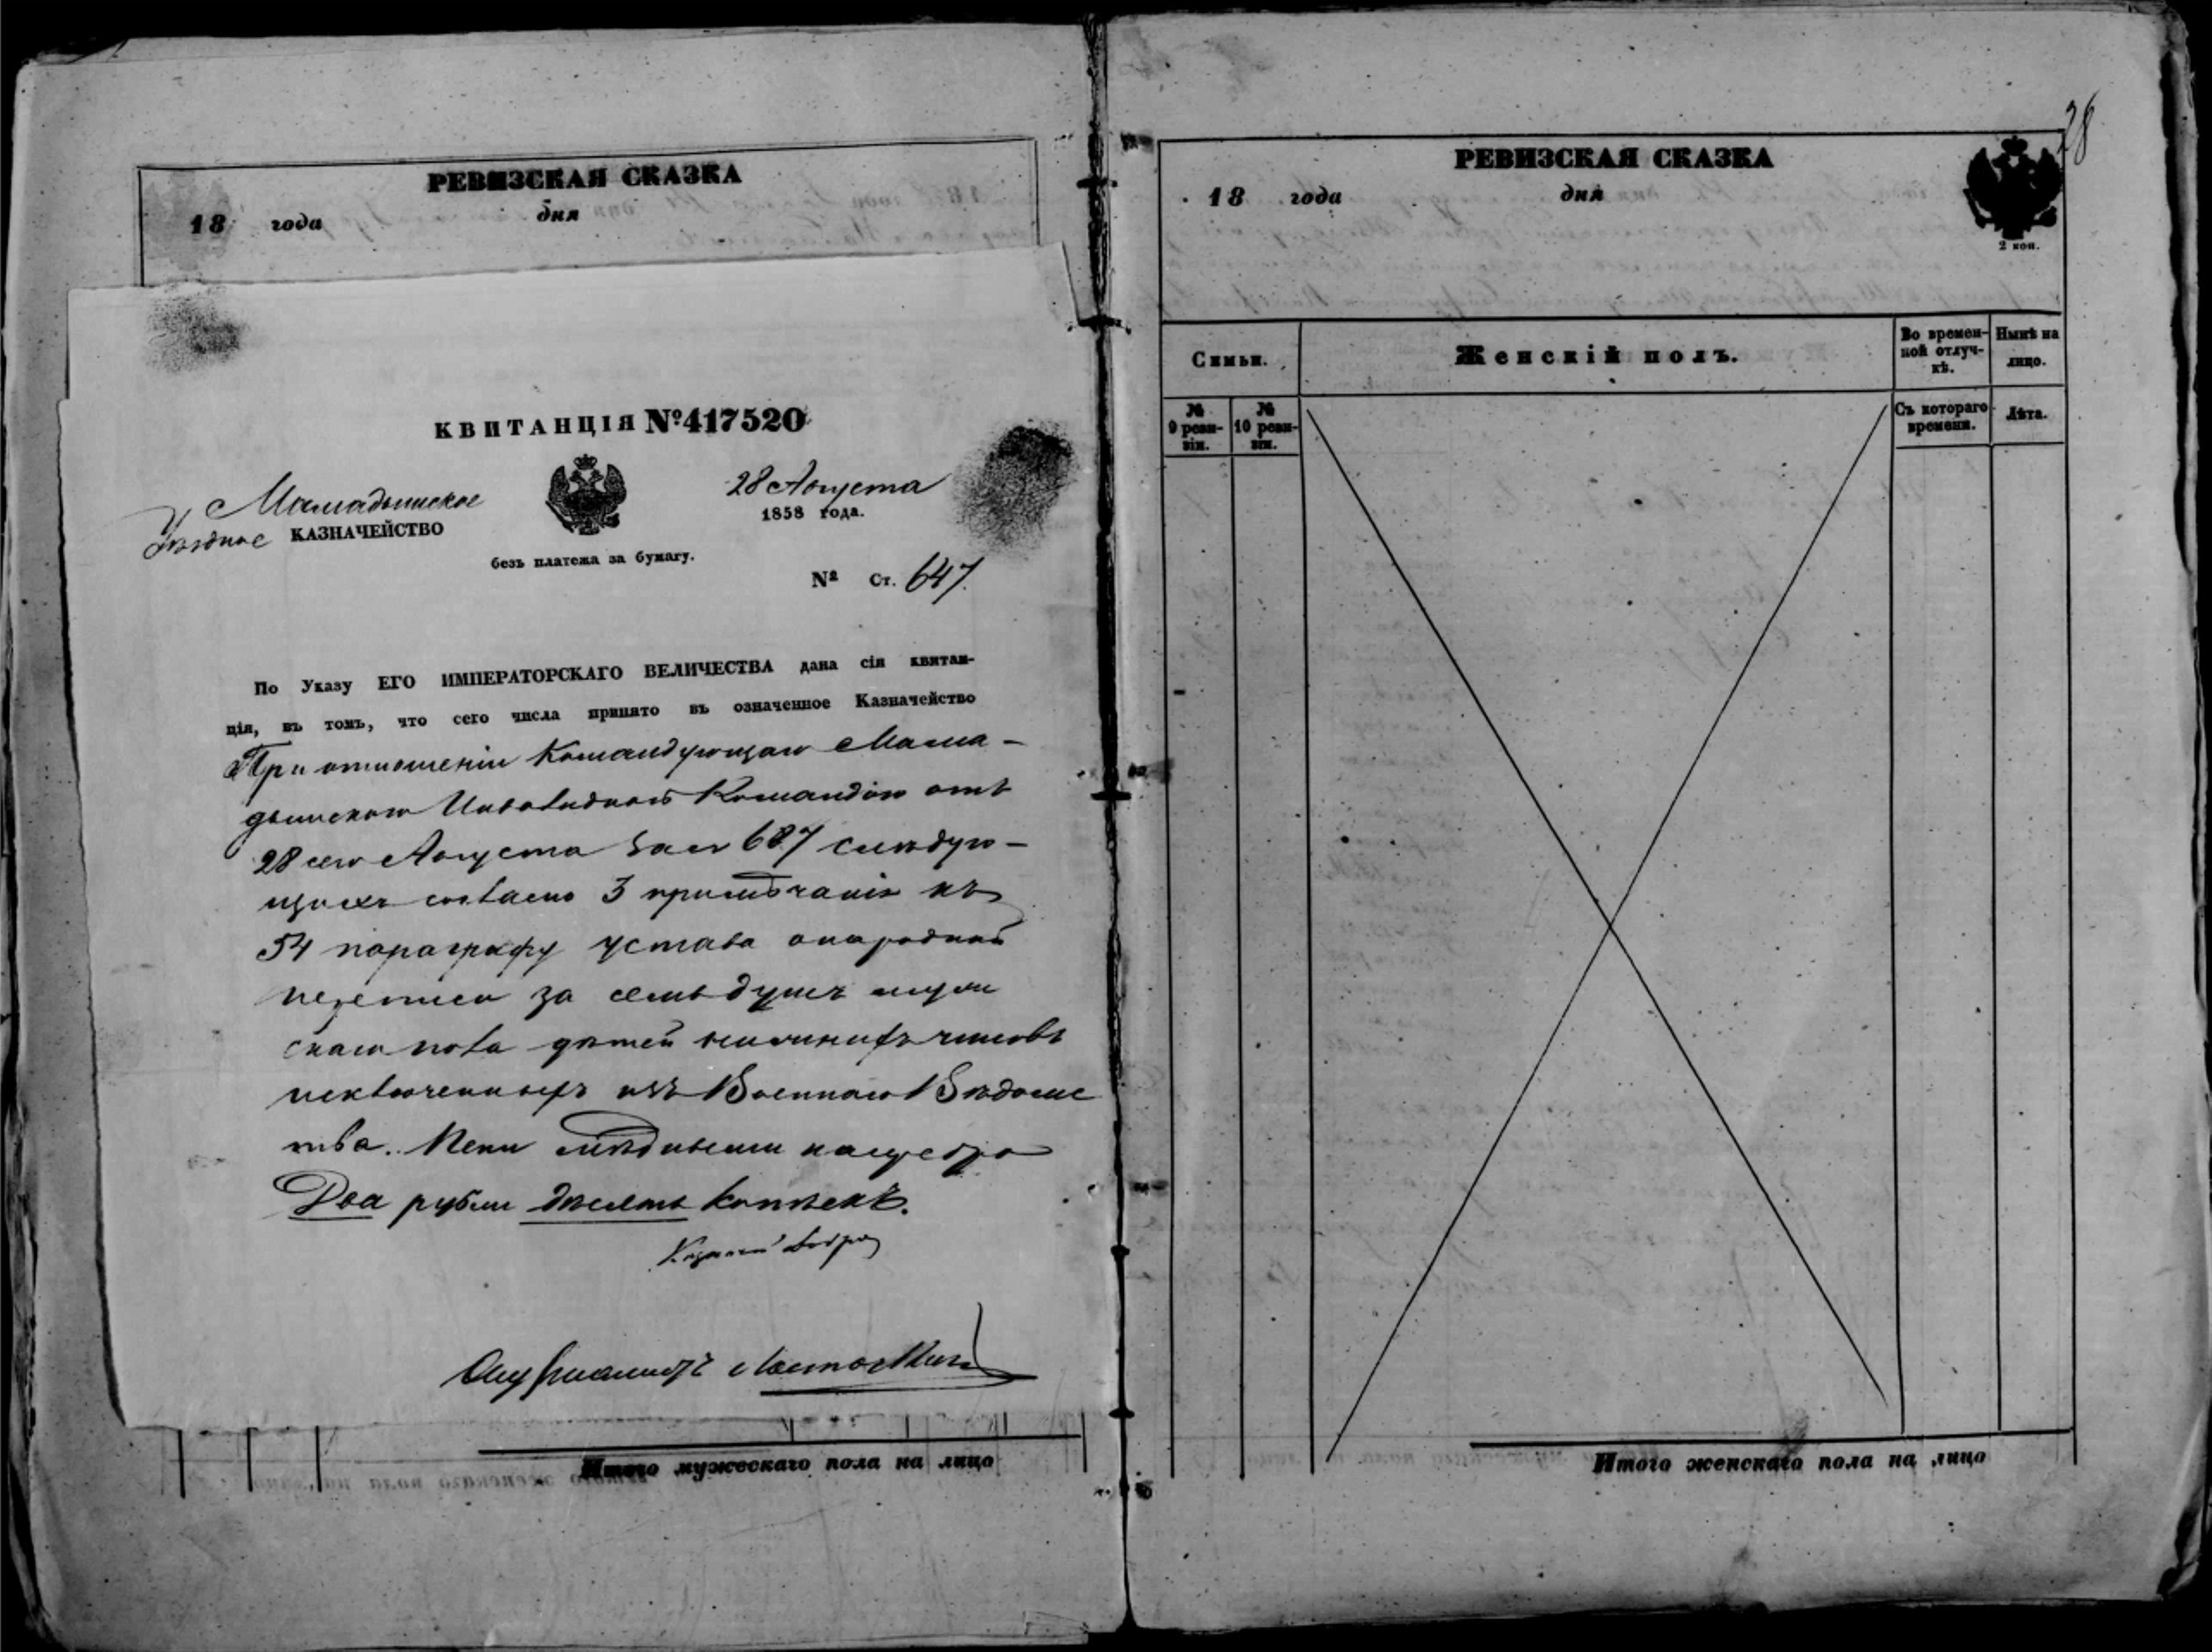 РЕВИЗСКАЯ СКАЗКА
18 года дня
КВИТАНЦІЯ №417520
Мамадышское
Уѣздное КАЗНАЧЕЙСТВО
28 Августа
1858 года.
безъ платежа за бумагу.
№ Ст. 647.
По Указу ЕГО ИМПЕРАТОРСКАГО ВЕЛИЧЕСТВА дана сія квитан-
ція, въ томъ, что сего числа принято въ означенное Казначейство
При отношеніи Командующаго Мама-
дышскою Инвалидною Командою отъ
28 сего Августа за № 687 слѣдую-
щихъ согласно 3 примѣчанія къ
54 параграфу устава о народной
переписи за семь душъ муже
скаго пола дѣтей нижнихъ чиновъ
исключенныхъ изъ Военнаго Вѣдомс
тва. Пени мѣдными на серебро
Два рубли десять копѣекъ.
Итого мужескаго пола на лицо
28
РЕВИЗСКАЯ СКАЗКА
18 года дня
2 коп.
Симьи.
Женскій полъ.
Во времен-
ной отлуч-
кѣ.
Нынѣ на
лицо.
№
9 реви-
зіи.
№
10 реви-
зіи.
Съ котораго
времени.
Лѣта.
Итого женскаго пола на лицо